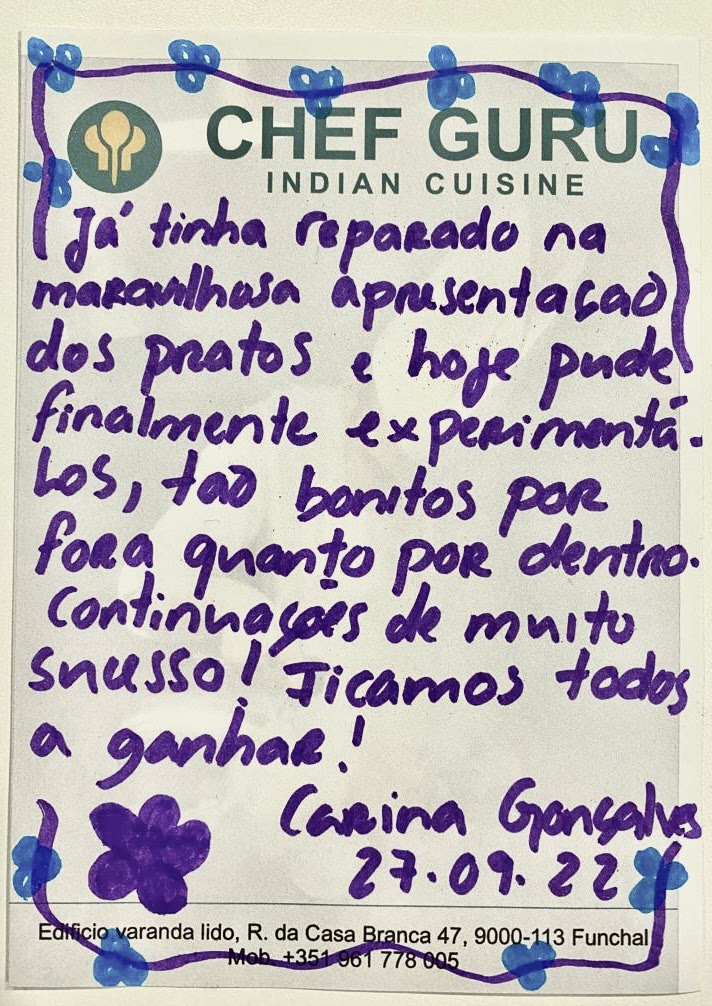 CHEF GURU
INDIAN CUISINE
Já tinha reparado na
maravilhosa apresentacao
dos pratos e hoje pude
finalmente experimentá-
los, tao bonitos por
fora quanto por dentro.
Continuações de muito
snusso! Ficamos todos
a ganhar!
Carina Gonçalves
27.09.22
Edificio varanda lido, R. da Casa Branca 47, 9000-113 Funchal
Mob. +351 961 778 005